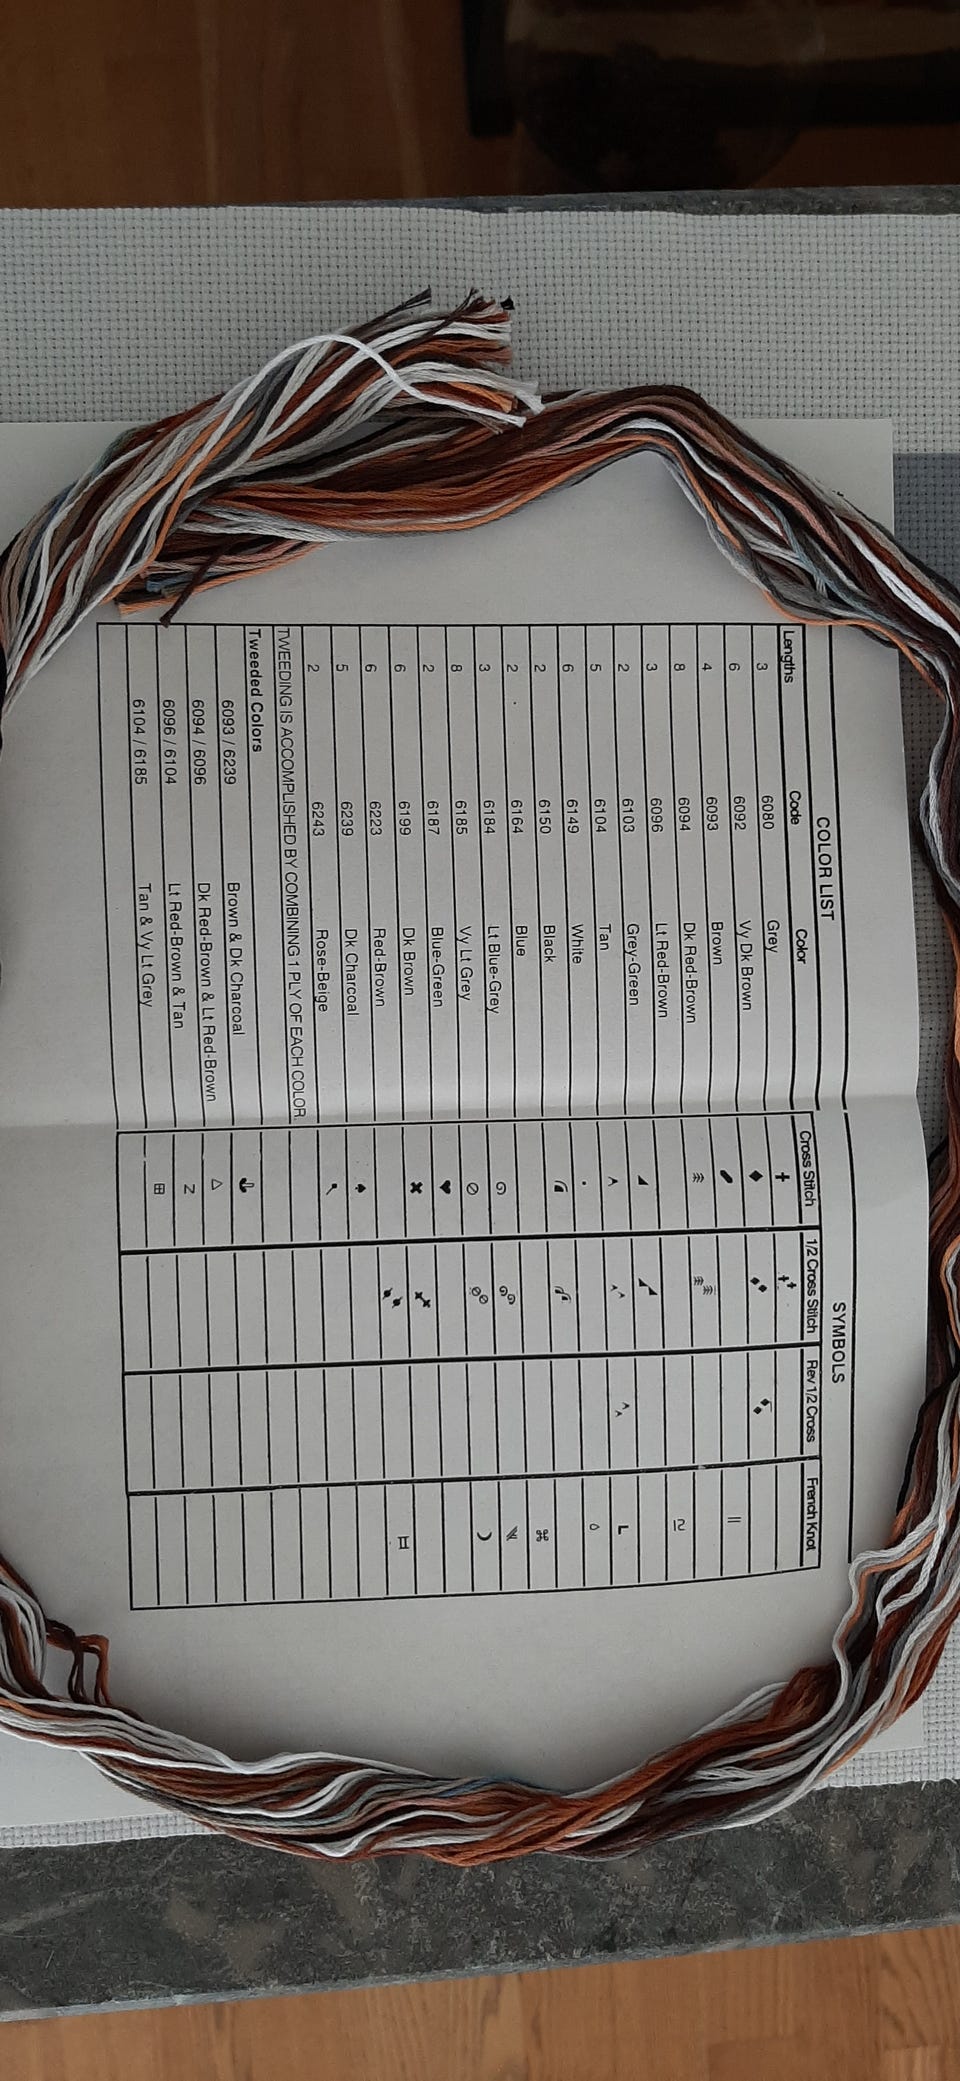 COLOR LIST SYMBOLS
Lengths Code Color Cross Stitch 1/2 Cross Stitch Rev 1/2 Cross French Knot
3 6080 Grey
6 6092 Vy Dk Brown
4 6093 Brown
8 6094 Dk Red-Brown
3 6096 Lt Red-Brown
2 6103 Grey-Green
5 6104 Tan
6 6149 White
2 6150 Black
2 6164 Blue
3 6184 Lt Blue-Grey
8 6185 Vy Lt Grey
2 6187 Blue-Green
6 6199 Dk Brown
6 6223 Red-Brown
5 6239 Dk Charcoal
2 6243 Rose-Beige
TWEEDING IS ACCOMPLISHED BY COMBINING 1 PLY OF EACH COLOR.
Tweeded Colors
6093 / 6239 Brown & Dk Charcoal
6094 / 6096 Dk Red-Brown & Lt Red-Brown
6096 / 6104 Lt Red-Brown & Tan
6104 / 6185 Tan & Vy Lt Grey